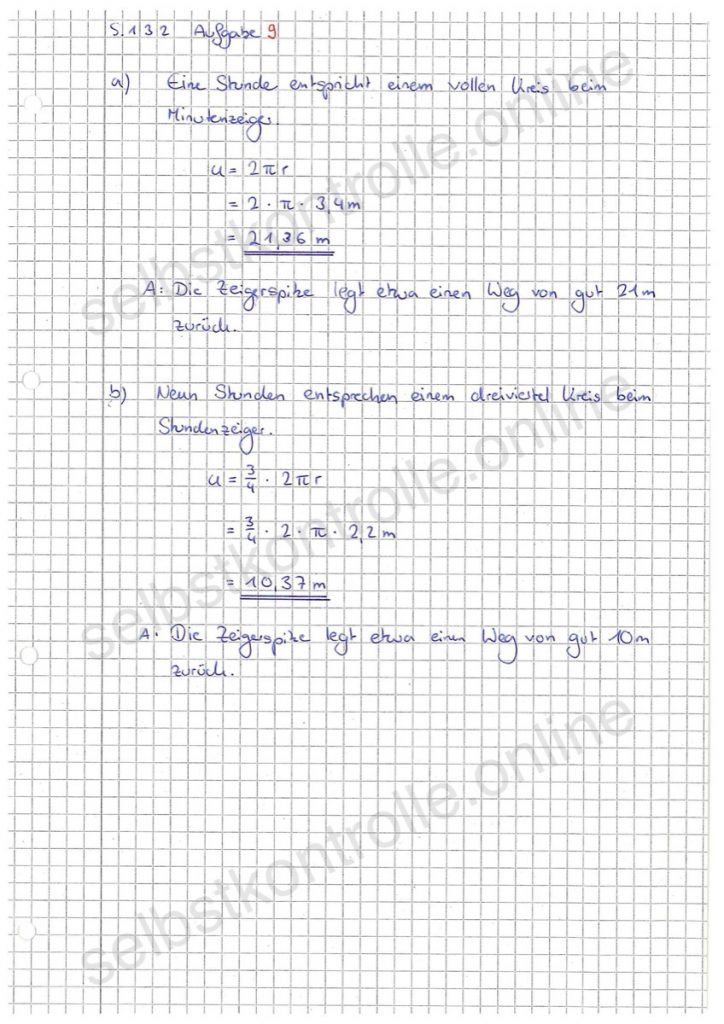 S. 132 Aufgabe 9
a) Eine Stunde entspricht einem vollen Kreis beim
Minutenzeiger.
u = 2πr
= 2 · π · 3,4m
= 21,36 m
A: Die Zeigerspitze legt etwa einen Weg von gut 21m
zurück.
b) Neun Stunden entsprechen einem dreiviertel Kreis beim
Stundenzeiger.
u = 3/4 · 2πr
= 3/4 · 2 · π · 2,2m
= 10,37m
A: Die Zeigerspitze legt etwa einen Weg von gut 10m
zurück.
selbstkontrolle.online
selbstkontrolle.online
selbstkontrolle.online